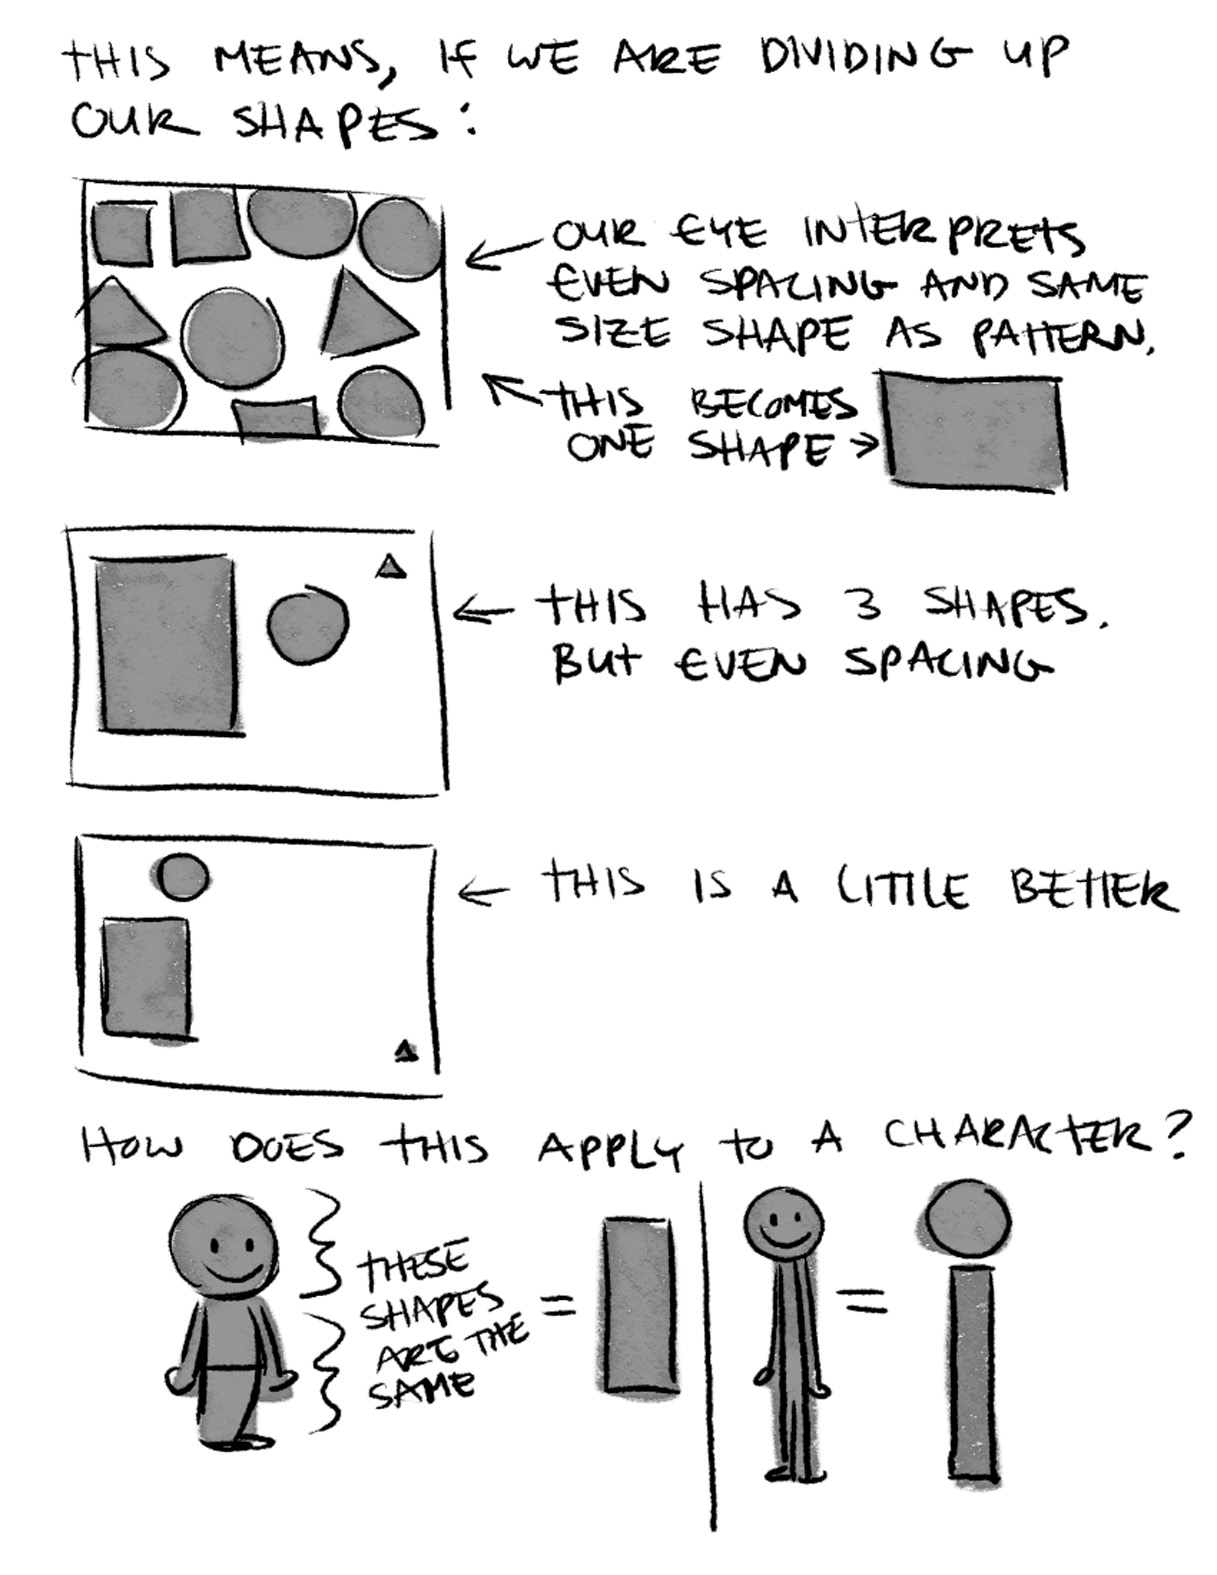 THIS MEANS, IF WE ARE DIVIDING UP
OUR SHAPES:
OUR EYE INTERPRETS
EVEN SPACING AND SAME
SIZE SHAPE AS PATTERN.
THIS BECOMES
ONE SHAPE
THIS HAS 3 SHAPES.
BUT EVEN SPACING
THIS IS A LITTLE BETTER
HOW DOES THIS APPLY TO A CHARACTER?
THESE
SHAPES
ARE THE
SAME
=
=